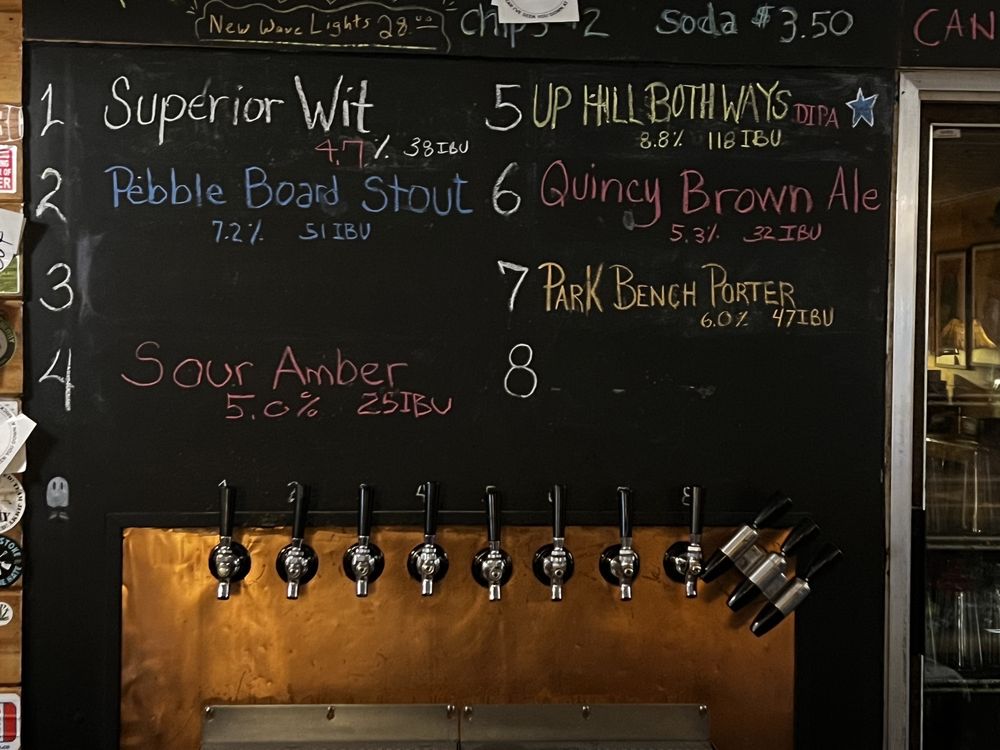 New Wave Lights 28.00
Chips $2
Soda $3.50
CAN
1 Superior Wit
4.7% 38IBU
2 Pebble Board Stout
7.2% 51 IBU
3
4 Sour Amber
5.0% 25IBU
5 UP HILL BOTH WAYS DIPA
8.8% 118 IBU
6 Quincy Brown Ale
5.3% 32 IBU
7 PARK BENCH PORTER
6.0% 47IBU
8
1 2 4 8